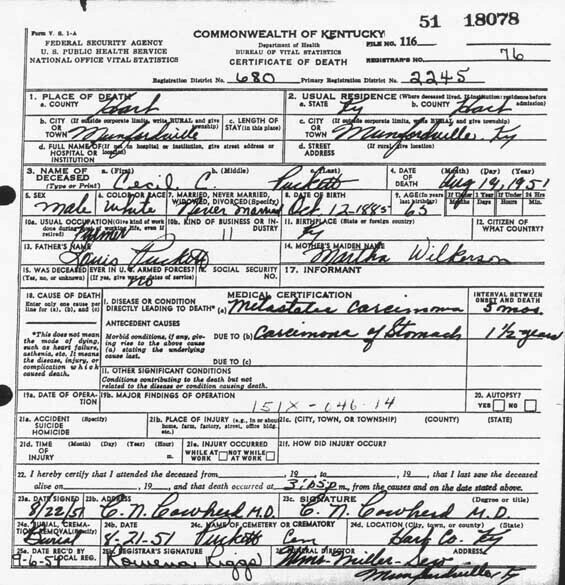 51 18078
Form V. S. 1-A
COMMONWEALTH OF KENTUCKY
FEDERAL SECURITY AGENCY
U. S. PUBLIC HEALTH SERVICE
NATIONAL OFFICE VITAL STATISTICS
Department of Health
BUREAU OF VITAL STATISTICS
CERTIFICATE OF DEATH
FILE NO. 116
REGISTRAR'S NO. 76
Registration District No. 680 Primary Registration District No. 2245
1. PLACE OF DEATH
a. COUNTY Hart
2. USUAL RESIDENCE (Where deceased lived. If institution: residence before admission)
a. STATE Ky b. COUNTY Hart
b. CITY (If outside corporate limits, write RURAL and give township) OR TOWN Munfordville
c. LENGTH OF STAY (in this place)
c. CITY (If outside corporate limits, write RURAL and give township) OR TOWN Munfordville, Ky
d. FULL NAME OF (If not in hospital or institution, give street address) HOSPITAL OR INSTITUTION
d. STREET ADDRESS (If rural, give location)
3. NAME OF DECEASED (Type or Print) a. (First) Cecil b. (Middle) C. c. (Last) Puckett
4. DATE OF DEATH (Month) (Day) (Year) Aug 19, 1951
5. SEX Male
6. COLOR OR RACE White
7. MARRIED, NEVER MARRIED, WIDOWED, DIVORCED (Specify) Never Married
8. DATE OF BIRTH Oct 12-1885
9. AGE (In years last birthday) 65
If Under 1 Year Months Days
If Under 24 Hrs. Hours Min.
10a. USUAL OCCUPATION (Give kind of work done during most of working life, even if retired) Farmer
10b. KIND OF BUSINESS OR INDUSTRY
11. BIRTHPLACE (State or foreign country) Ky
12. CITIZEN OF WHAT COUNTRY?
13. FATHER'S NAME Louis Puckett
14. MOTHER'S MAIDEN NAME Martha Wilkerson
15. WAS DECEASED EVER IN U. S. ARMED FORCES? (Yes, no, or unknown) (If yes, give war or dates of service) no
16. SOCIAL SECURITY NO.
17. INFORMANT
18. CAUSE OF DEATH
Enter only one cause per line for (a), (b), and (c)
*This does not mean the mode of dying, such as heart failure, asthenia, etc. It means the disease, injury, or complication which caused death.
MEDICAL CERTIFICATION
INTERVAL BETWEEN ONSET AND DEATH
I. DISEASE OR CONDITION DIRECTLY LEADING TO DEATH* (a) Metastates Carcimoma 5 mos.
ANTECEDENT CAUSES
Morbid conditions, if any, giving rise to the above cause (a) stating the underlying cause last.
DUE TO (b) Carcimoma of Stomach 1 1/2 years
DUE TO (c)
II. OTHER SIGNIFICANT CONDITIONS
Conditions contributing to the death but not related to the disease or condition causing death.
19a. DATE OF OPERATION
19b. MAJOR FINDINGS OF OPERATION
151X-046-14
20. AUTOPSY? YES NO
21a. ACCIDENT SUICIDE HOMICIDE (Specify)
21b. PLACE OF INJURY (e.g., in or about home, farm, factory, street, office bldg. etc.)
21c. (CITY, TOWN, OR TOWNSHIP) (COUNTY) (STATE)
21d. TIME OF INJURY (Month) (Day) (Year) (Hour) m.
21e. INJURY OCCURRED WHILE AT WORK NOT WHILE AT WORK
21f. HOW DID INJURY OCCUR?
22. I hereby certify that I attended the deceased from , 19 , to , 19 , that I last saw the deceased
alive on , 19 , and that death occurred at 3:05P m., from the causes and on the date stated above.
23a. DATE SIGNED 8/22/51
23b. ADDRESS C. N. Cowherd M.D.
23c. SIGNATURE (Degree or title) C. N. Cowherd M.D.
24a. BURIAL, CREMATION, REMOVAL (Specify) Burial
24b. DATE 8-21-51
24c. NAME OF CEMETERY OR CREMATORY Puckett Cem
24d. LOCATION (City, town, or county) (State) Hart Co. Ky
25a. REC'D BY LOCAL REG. 9-6-51
25b. REGISTRAR'S SIGNATURE Rowena Riggs
FUNERAL DIRECTOR ADDRESS
Munfordville, Ky